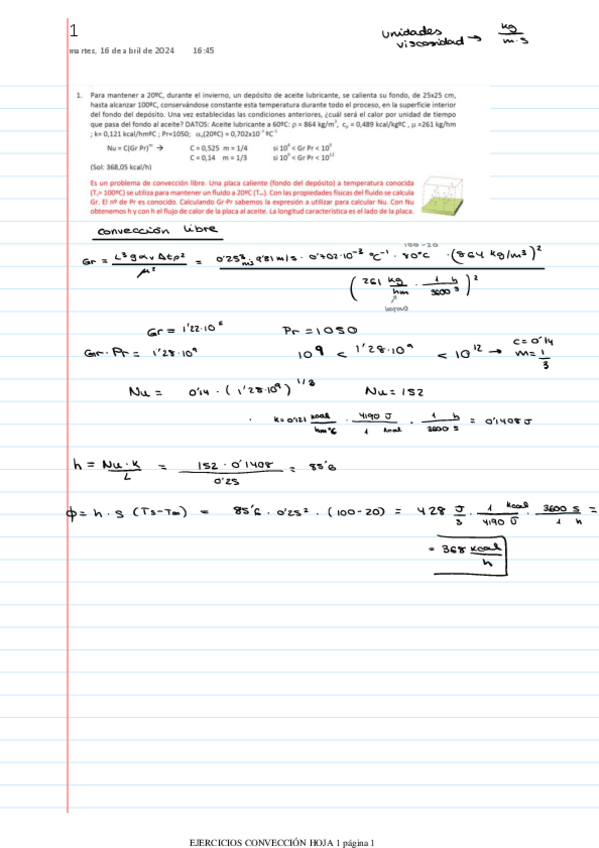 1
martes, 16 de abril de 2024 16:45
unidades viscosidad → kg/m·s
1. Para mantener a 20ºC, durante el invierno, un depósito de aceite lubricante, se calienta su fondo, de 25x25 cm,
hasta alcanzar 100ºC, conservándose constante esta temperatura durante todo el proceso, en la superficie interior
del fondo del depósito. Una vez establecidas las condiciones anteriores, ¿cuál será el calor por unidad de tiempo
que pasa del fondo al aceite? DATOS: Aceite lubricante a 60ºC: ρ = 864 kg/m³, cₚ = 0,489 kcal/kgºC , μ =261 kg/hm
; k= 0,121 kcal/hmºC ; Pr=1050; αᵥ(20ºC) = 0,702x10⁻³ ºC⁻¹
Nu = C(Gr Pr)ᵐ → C = 0,525 m = 1/4 si 10⁴ < Gr Pr < 10⁹
C = 0,14 m = 1/3 si 10⁹ < Gr Pr < 10¹²
(Sol: 368,05 kcal/h)
Es un problema de convección libre. Una placa caliente (fondo del depósito) a temperatura conocida
(Tₛ= 100ºC) se utiliza para mantener un fluido a 20ºC (T∞). Con las propiedades físicas del fluido se calcula
Gr. El nº de Pr es conocido. Calculando Gr·Pr sabemos la expresión a utilizar para calcular Nu. Con Nu
obtenemos h y con h el flujo de calor de la placa al aceite. La longitud característica es el lado de la placa.
convección libre
100-20
Gr = L³ g αv Δt ρ² / μ² = 0'25³ m³ 9'81 m/s · 0'702·10⁻³ °C⁻¹ · 80°C · (864 kg/m³)² / (261 kg/hm · 1 h/3600 s)²
Gr = 1'22·10⁶ Pr = 1050
Gr·Pr = 1'28·10⁹ 10⁹ < 1'28·10⁹ < 10¹² → C = 0'14 m = 1/3
Nu = 0'14 · (1'28·10⁹)^1/3 Nu = 152
· k = 0'121 kcal/hm°C · 4190 J/1 kcal · 1 h/3600 s = 0'1408 J
h = Nu·k/L = 152 · 0'1408/0'25 = 85'6
ϕ = h · S (Ts-T∞) = 85'6 · 0'25² · (100-20) = 428 J/s · 1 kcal/4190 J · 3600 s/1 h =
= 368 kcal/h
EJERCICIOS CONVECCIÓN HOJA 1 página 1